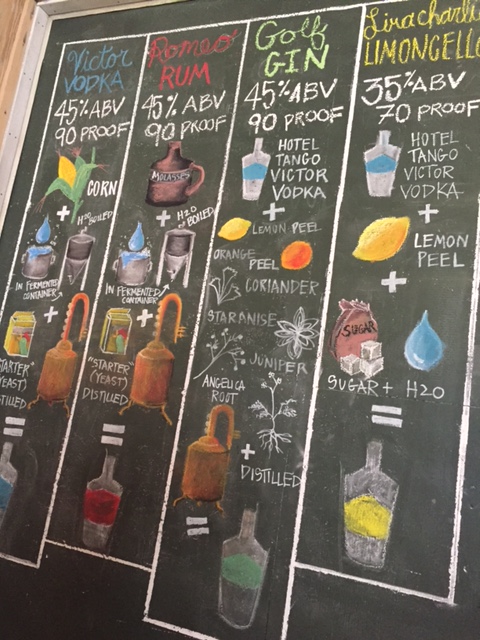 Victor
VODKA
45% ABV
90 PROOF
CORN
+
H20 BOILED
IN FERMENTED
CONTAINER
+
(YEAST)
=
Romeo
RUM
45% ABV
90 PROOF
MOLASSES
+
H20
BOILED
IN FERMENTED
CONTAINER
+
"STARTER"
(YEAST)
DISTILLED
=
Golf
GIN
45% ABV
90 PROOF
HOTEL
TANGO
VICTOR
VODKA
+
LEMON PEEL
ORANGE
PEEL
CORIANDER
STARANISE
JUNIPER
ANGELICA
ROOT
+
DISTILLED
=
LIMONCELLO
35% ABV
70 PROOF
HOTEL
TANGO
VICTOR
VODKA
+
LEMON
PEEL
+
SUGAR
SUGAR + H20
=